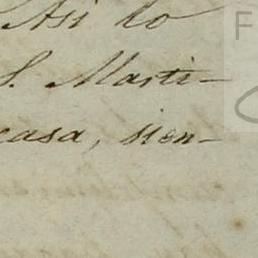 Asi lo
S. Marti-
casa, sien-